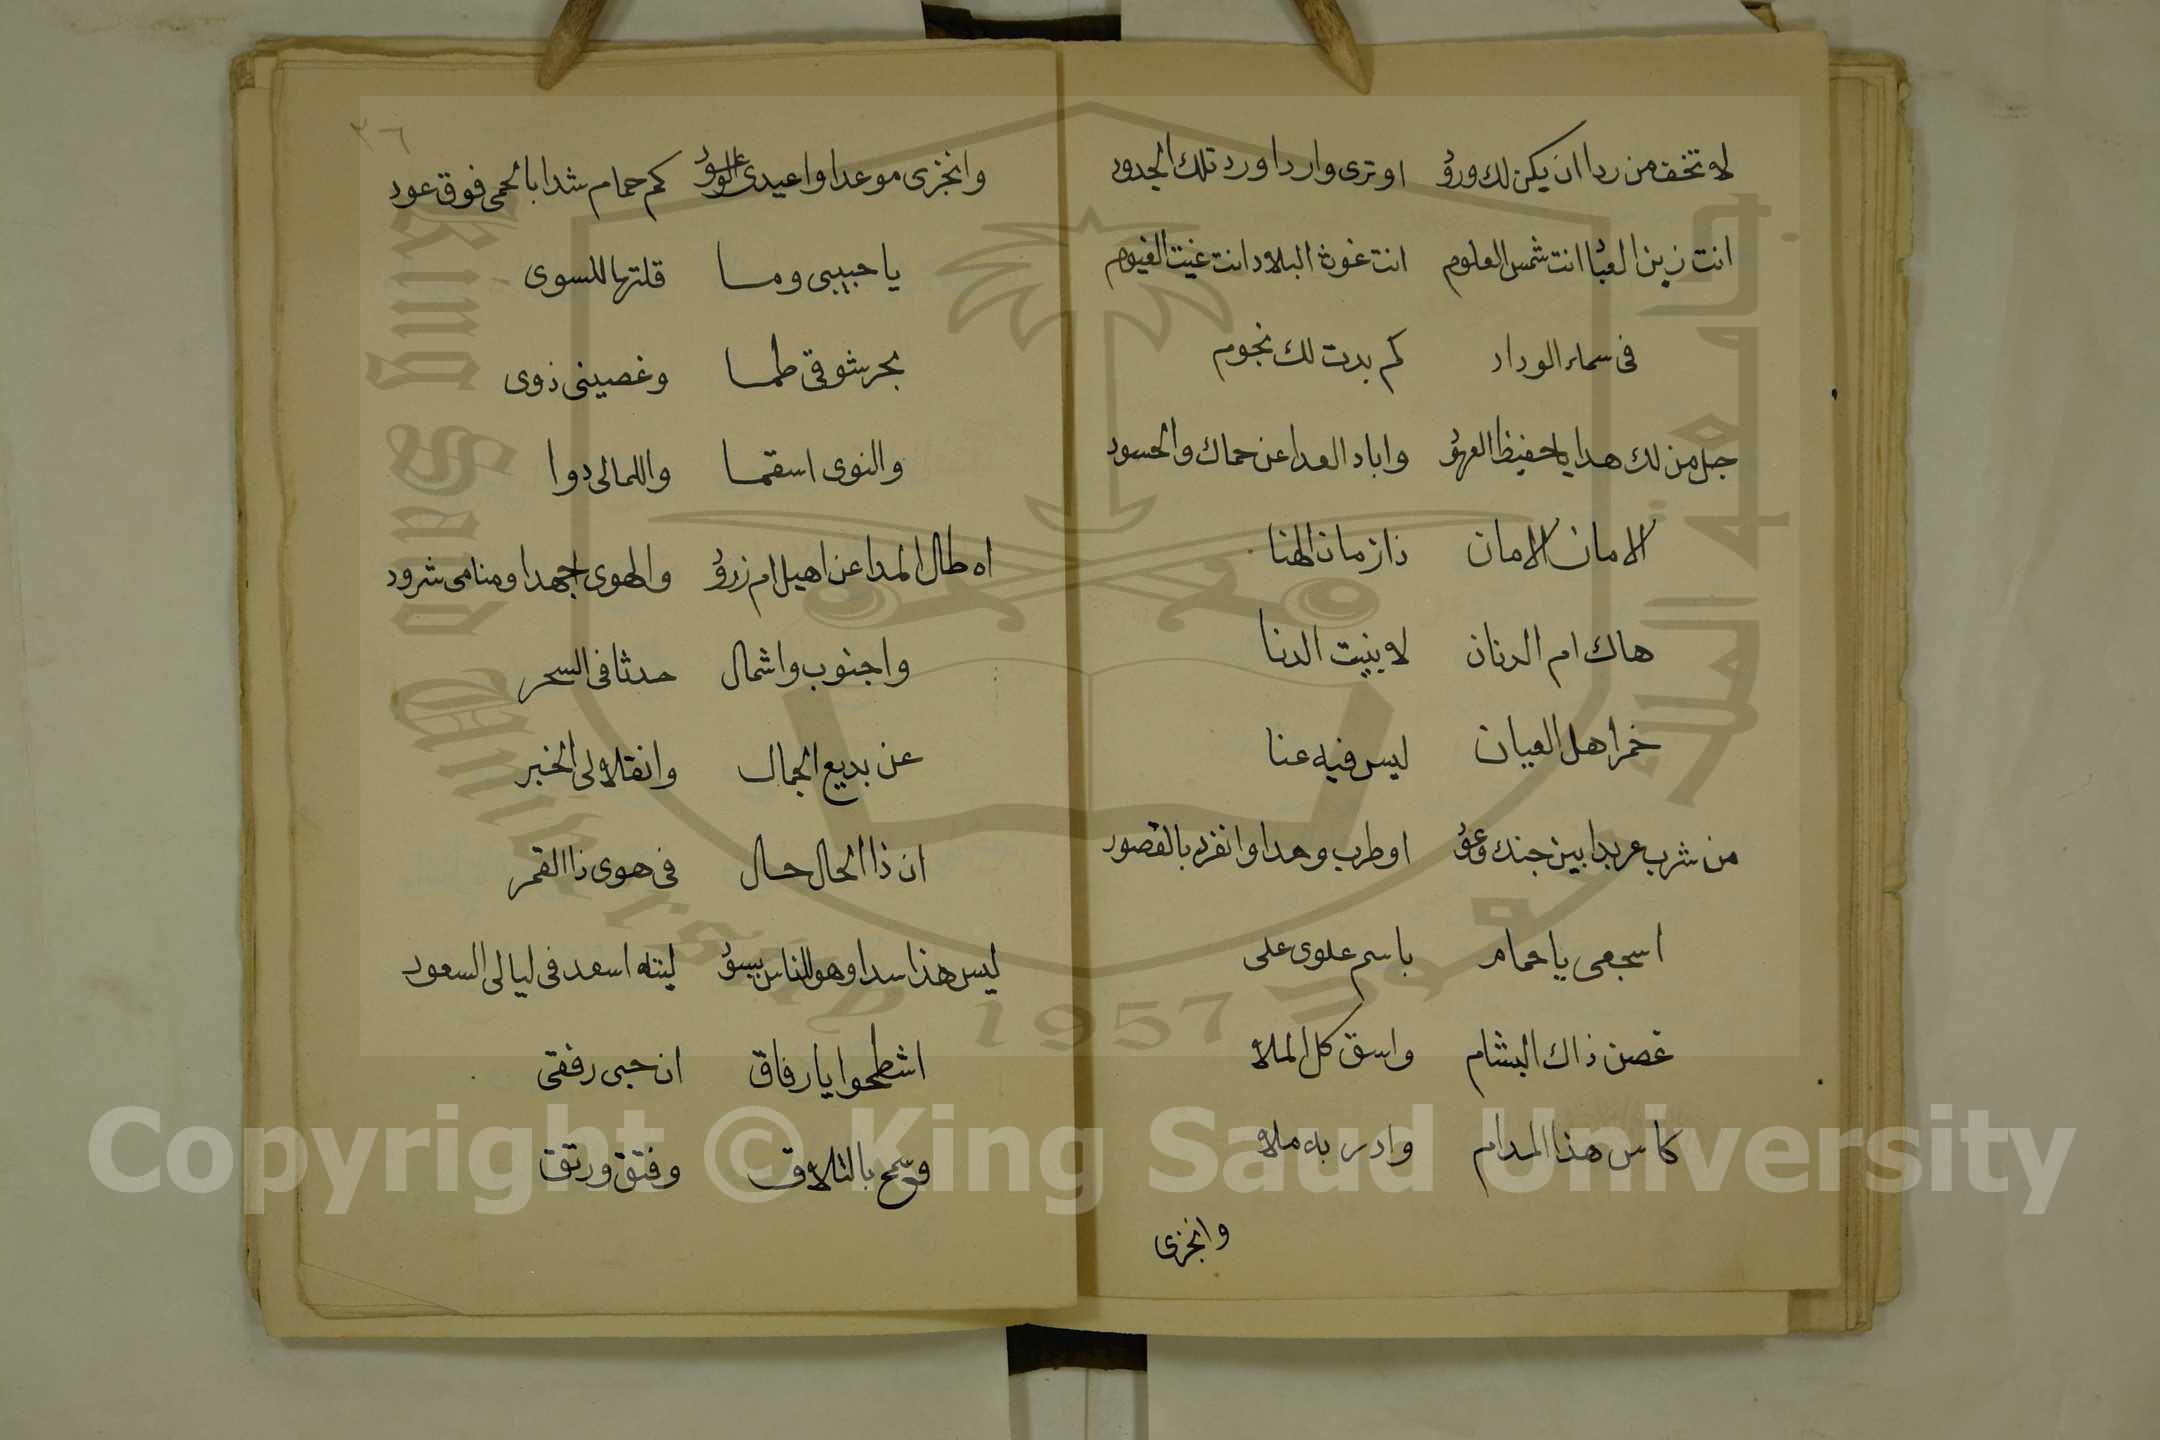 لا تخف من ردا ان يكن لك ورود او ترى واردا ورد تلك الجدود
انت زين العبا انت شمس العلوم انت غوث البلاد انت غيث الغيوم
فى سماء الوداد كم بدت لك نجوم
جل من لك هدا يا حفيظ العهود واباد العدا عن حماك والحسود
الامان الامان ذا زمان الهنا
هاك ام الدنان لا بنيت الدنا
خمر اهل العيان ليس فيه عنا
من شرب عربدا بين جنك وعود او طرب وهدا وانفرد بالقصود
اسجعى يا حمام باسم علوى على
غصن ذاك البشام واسق كل الملا
كاس هذا المدام وادر به ملا
وانجزى
٣٦
وانجزى موعدا واعيدى الورود كم حمام شدا بالحمى فوق عود
يا حبيبى وما قلتها للسوى
بحر شوقى طما وغصينى ذوى
والنوى اسقما واللما لى دوا
اه طال المدا عن اهيل ام زرود والهوى اجهدا ومنامى شرود
واجنوب واشمال حدثا فى السحر
عن بديع الجمال وانقلا لى الخبر
ان ذا الحال حال فى هوى ذا القمر
ليس هذا سدا وهو للناس يسود ليته اسعد فى ليالى السعود
اشطحوا يا رفاق ان حبى رفقى
وسمح بالتلاق وفتق ورتق
جامعة الملك سعود
King Saud University
1957
Copyright © King Saud University